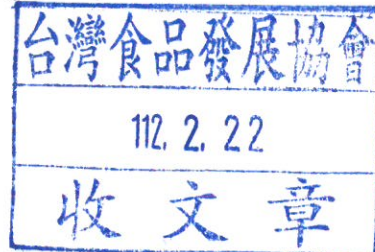 台灣食品發展協會
112. 2. 22
收文章